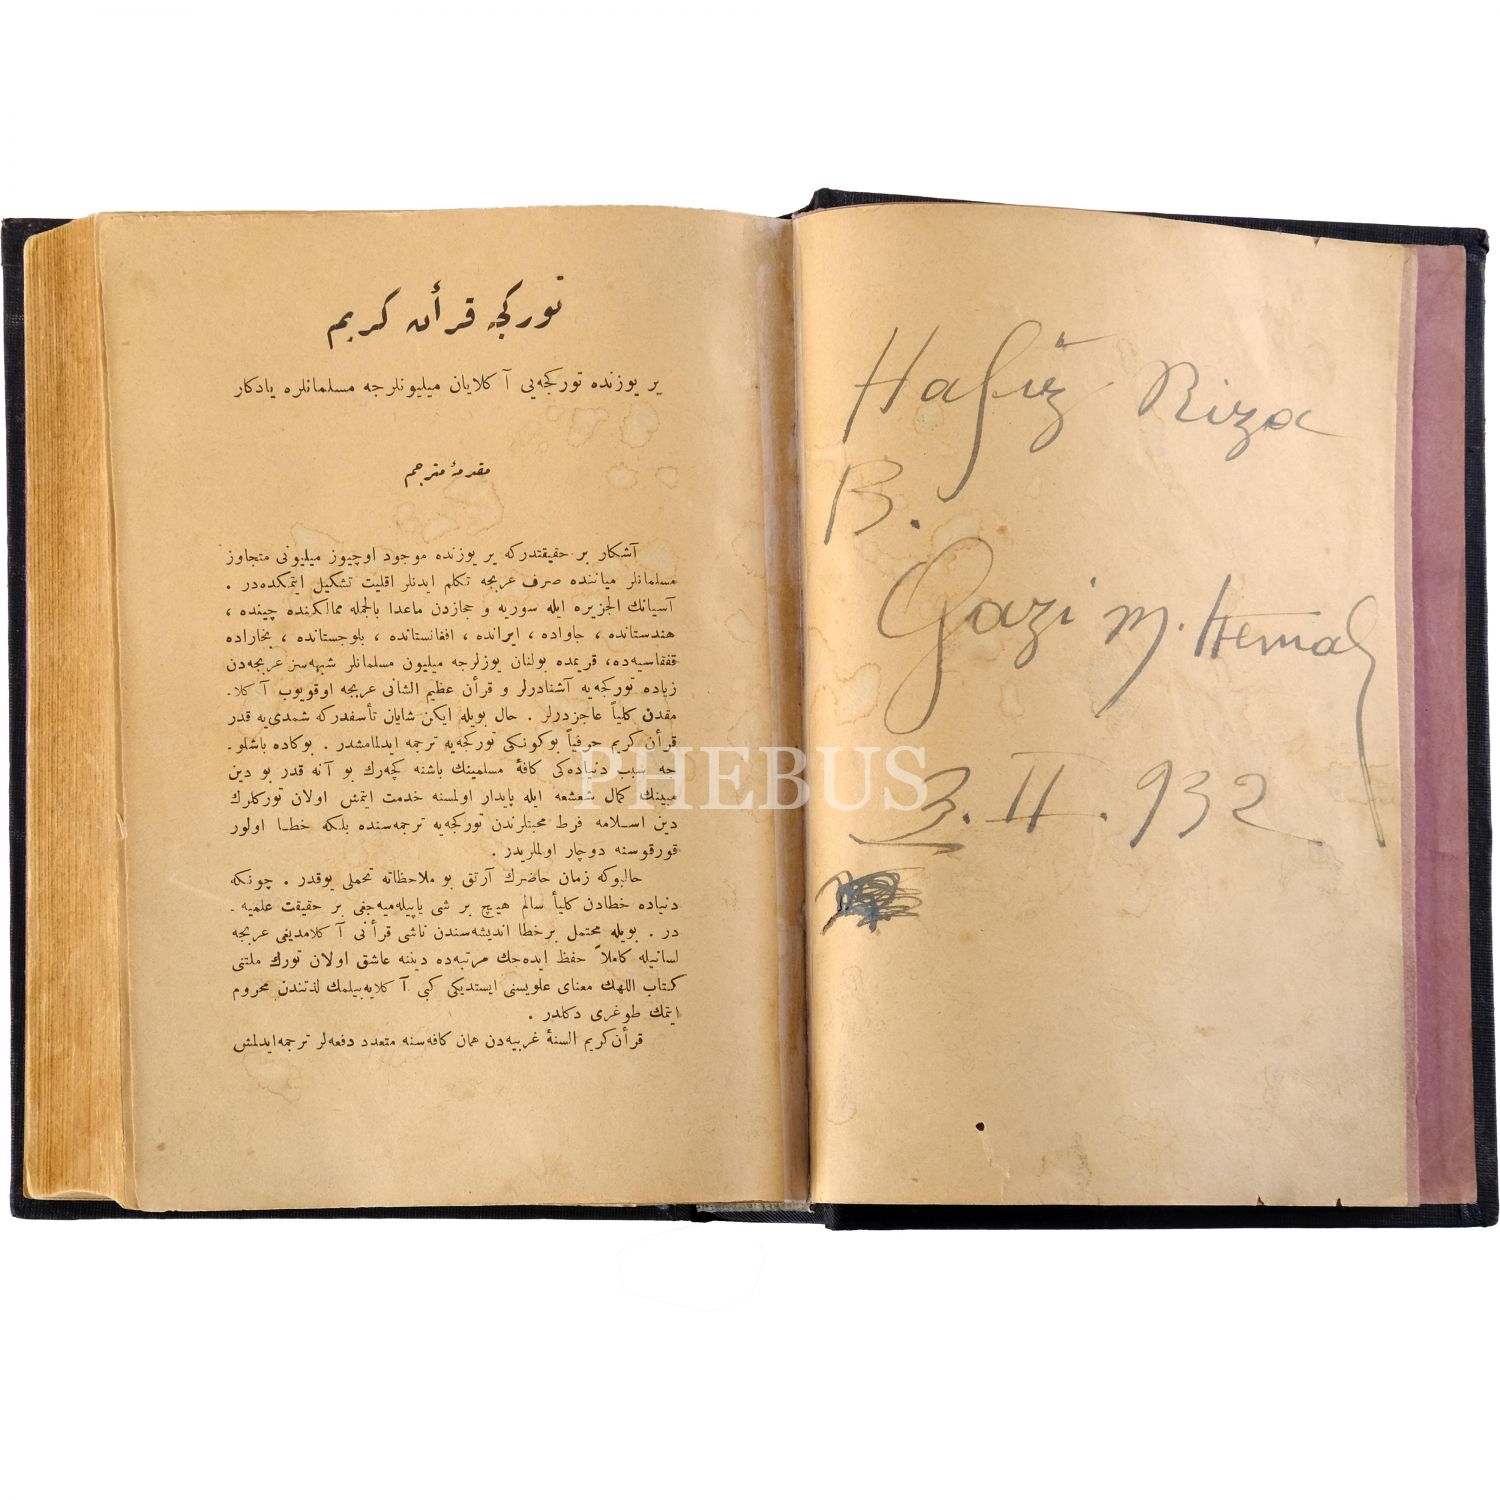 تورکجه قرأن کریم
یر یوزنده تورکجه‌یی آ کلایان میلیونلرجه مسلمانلره یادکار
مقدمهٔ مترجم
آشکار بر حقیقتدرکه یر یوزنده موجود اوچیوز میلیونی متجاوز
مسلمانلر میاننده صرف عربجه تکلم ایدنلر اقلیت تشکیل ایتمکده‌در .
آسیانك الجزیره ایله سوریه و حجازدن ماعدا بالجمله ممالکنده چینده ،
هندستانده ، جاواده ، ایرانده ، افغانستانده ، بلوجستانده ، بخاراده
قفقاسیه‌ده، قریمده بولنان یوزلرجه میلیون مسلمانلر شبهه‌سز عربجه‌دن
زیاده تورکجه‌یه آشنادرلر و قرأن عظیم الشانی عربجه اوقویوب آ کلا-
مقدن کلیاً عاجزدرلر . حال بویله ایکن شایان تأسفدرکه شمدی‌یه قدر
قرأن کریم حرفیاً بوکونکی تورکجه‌یه ترجمه ایدلمامشدر . بوکاده باشلو-
جه سبب دنیاده‌کی کافهٔ مسلمینك باشنه کچه‌رك بو آنه قدر بو دین
مبینك کمال شعشعه ایله پایدار اولمسنه خدمت ایتمش اولان تورکلرك
دین اسلامه فرط محبتلرندن تورکجه‌یه ترجمه‌سنده بلکه خطا اولور
قورقوسنه دوچار اولملریدر .
حالبوکه زمان حاضرك آرتق بو ملاحظاته تحملی یوقدر . چونکه
دنیاده خطادن کلیاً سالم هیچ بر شی یاپیله‌میه‌جغی بر حقیقت علمیه -
در . بویله محتمل برخطا اندیشه‌سندن ناشی قرأنی آ کلامدیغی عربجه
لسانیله کاملاً حفظ ایده‌جك مرتبه‌ده دیننه عاشق اولان تورك ملتنی
کتاب اللهك معنای علویسنی ایستدیکی کبی آ کلایه‌بیلمك لذتندن محروم
ایتمك طوغری دکلدر .
قرأن کریم السنهٔ غربیه‌دن همان کافه‌سنه متعدد دفعه‌لر ترجمه‌ایدلمش
Hafız Riza
B.
Gazi M. Kemal
3.II.932
PHEBUS